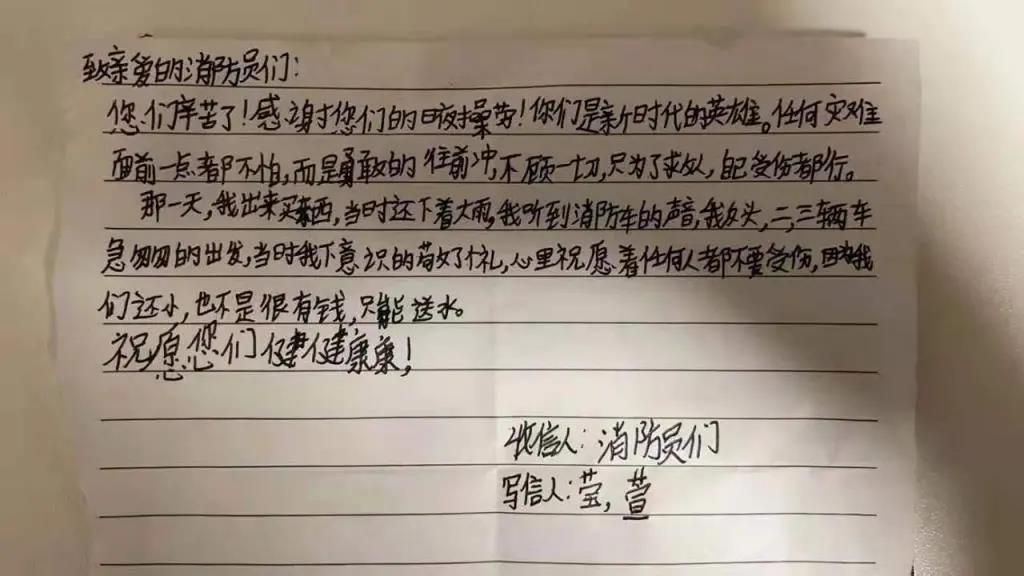 致亲爱的消防员们：
您们辛苦了！感谢您们的日夜操劳！你们是新时代的英雄。任何灾难
面前一点都不怕，而是勇敢的往前冲，不顾一切，只为了求人，自己受伤都行。
那一天，我出来买东西，当时还下着大雨，我听到消防车的声音，我头，二，三辆车
急匆匆的出发，当时我下意识的敬了个礼，心里祝愿着任何人都不要受伤，因为我
们还小，也不是很有钱，只能送水。
祝愿您们健健康康！
收信人：消防员们
写信人：莹，萱